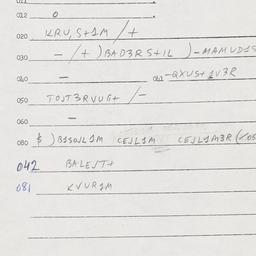 012 0
020 KRU,S+1M /+
030 - /+ ) BAD3RS+IL ) - MAMUD1S
040 - 041 - QXUS+ 1V3R
050 TOJT3RVUG+ /-
060 -
080 $ ) B1SOJL1M CEJL1M CEJL1M3R (/OS
042 BALEJT+
081 KVUR1M